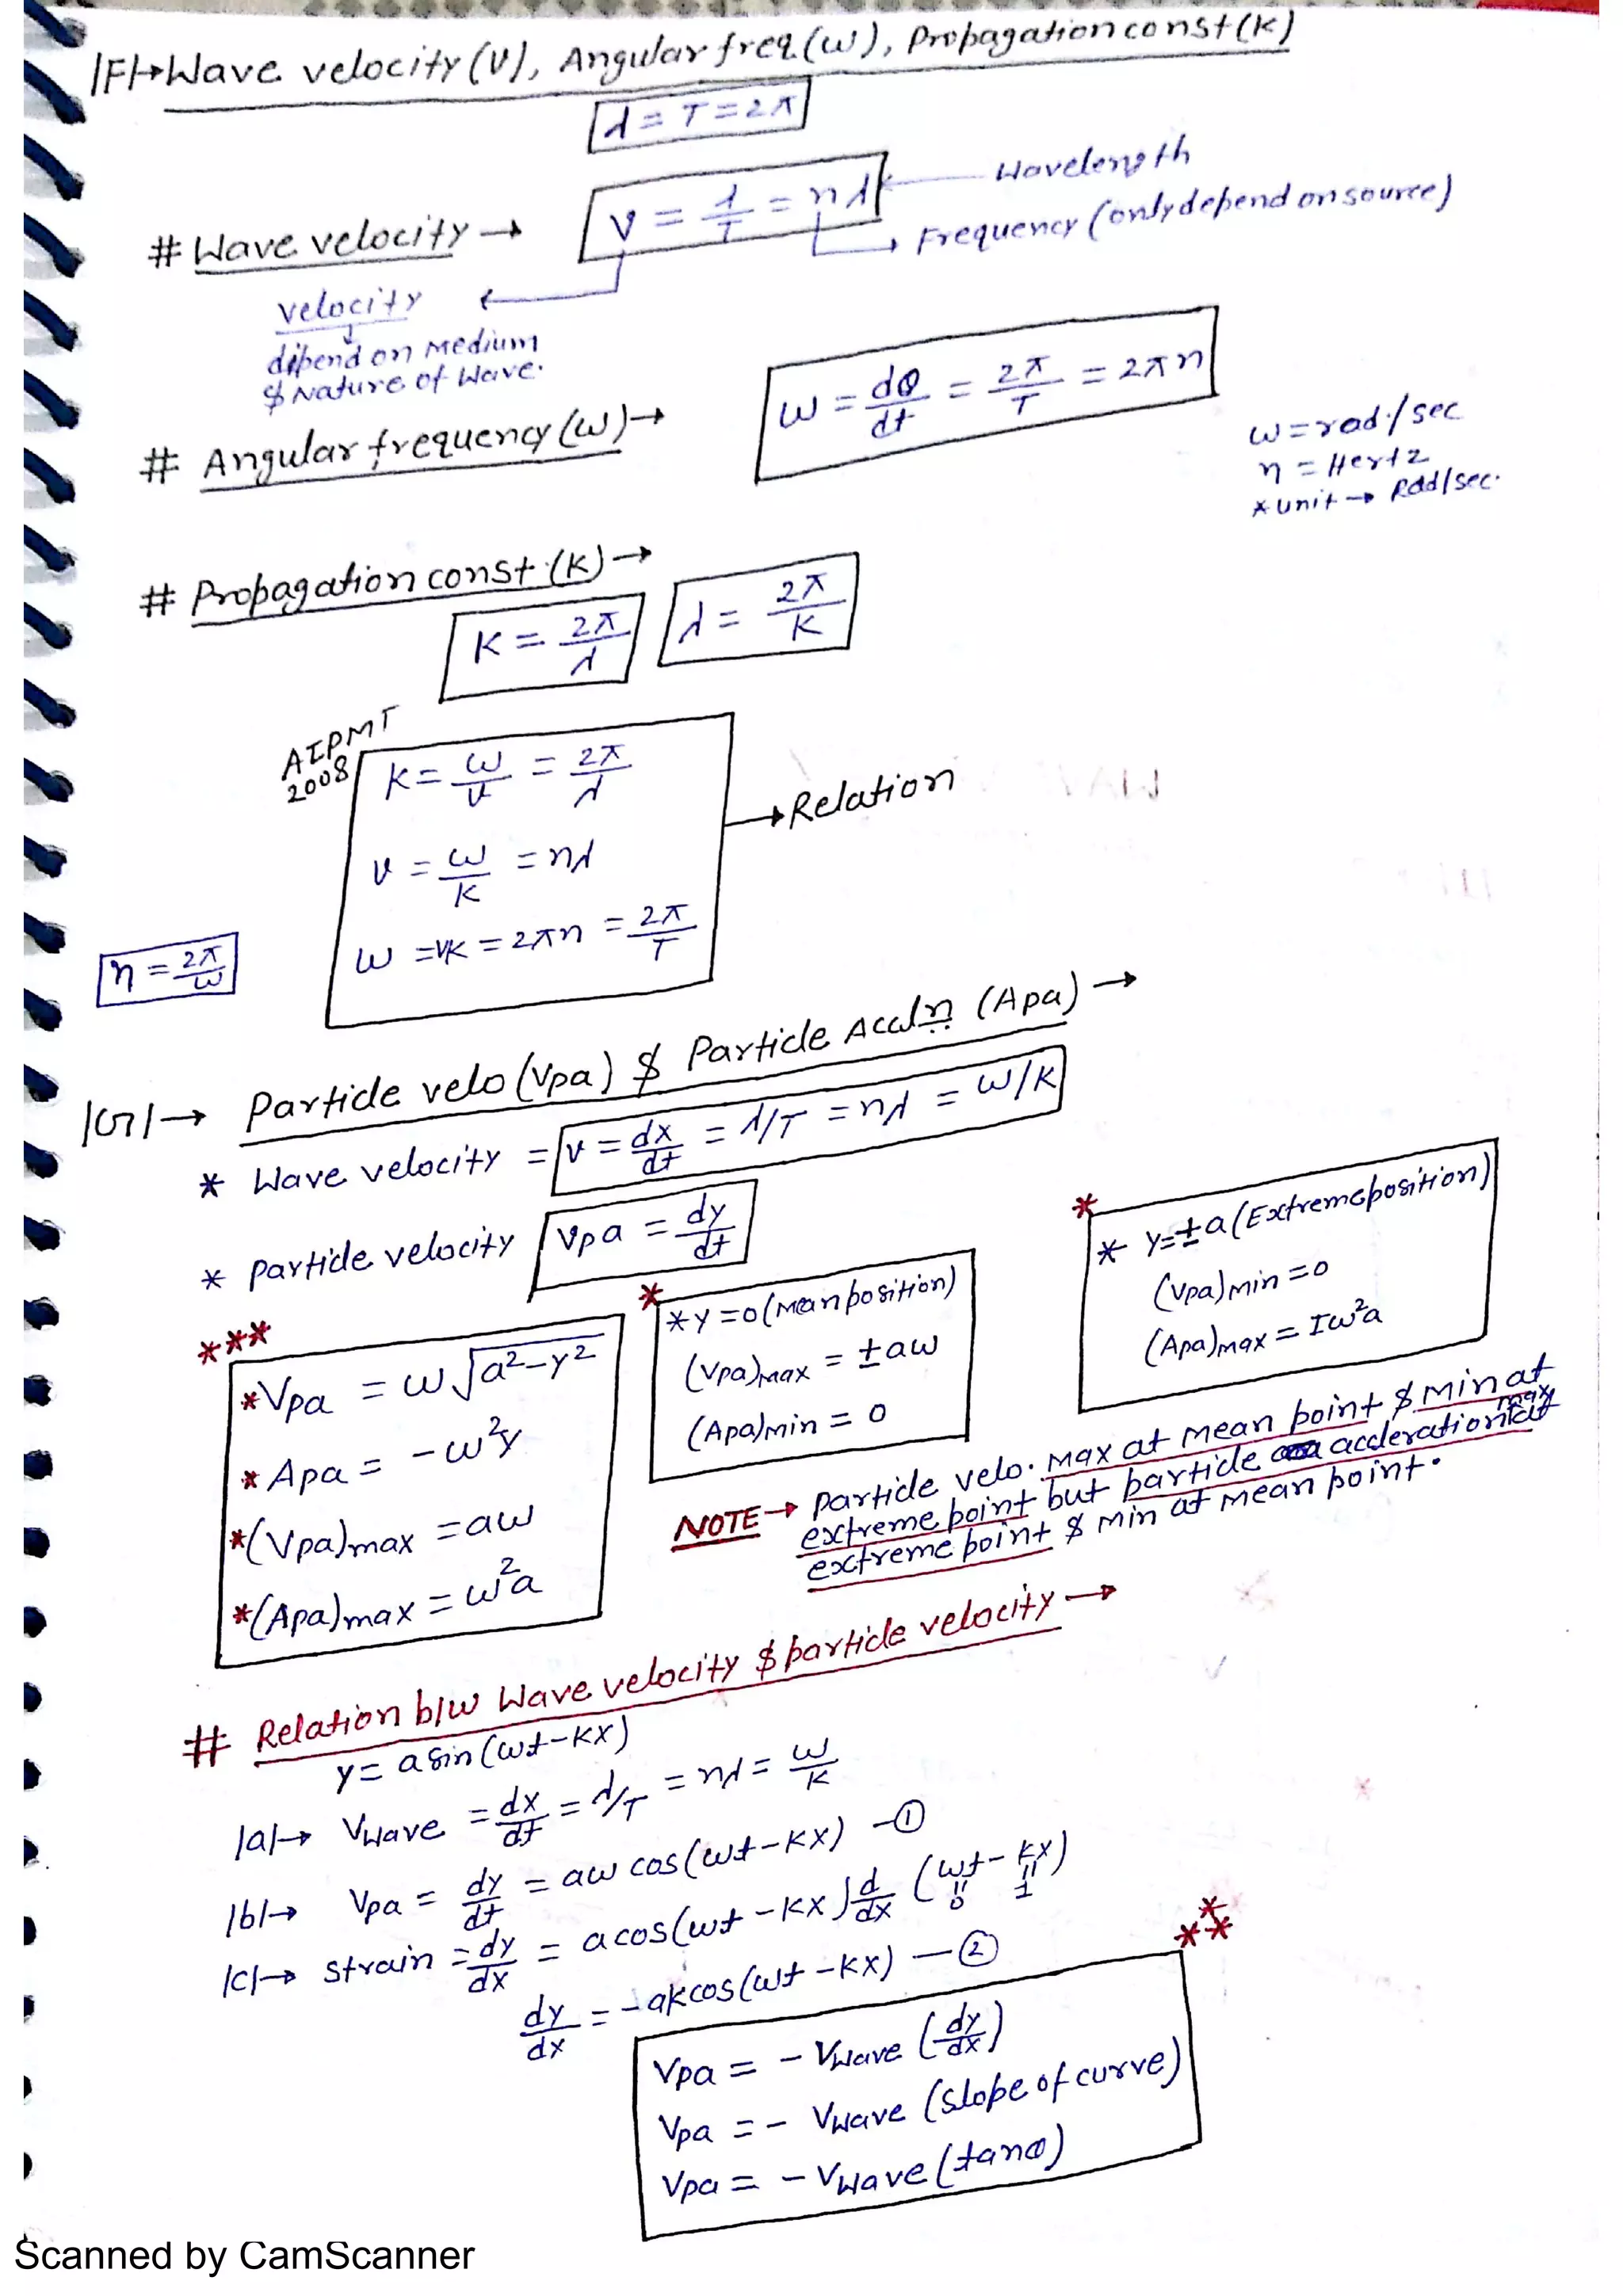 |F|→Wave velocity (V), Angular freq.(ω), Propagation const(K)
λ = T = 2π
# Wave velocity → V = λ/T = nλ
Wavelength
Frequency (only depend on source)
velocity
dipend on Medium
$ Nature of Wave.
# Angular frequency (ω) → ω = dθ/dt = 2π/T = 2πn
ω = rad/sec
n = Hertz
* unit → Rad/sec.
# Propagation const.(K) →
K = 2π/λ λ = 2π/K
AIPMT
2008
K = ω/v = 2π/λ
→ Relation
v = ω/K = nλ
ω = vK = 2πn = 2π/T
n = 2π/ω
|G| → Particle velo (Vpa) $ Particle Accln (Apa) →
* Wave velocity = v = dx/dt = λ/T = nλ = ω/K
* particle velocity Vpa = dy/dt
***
* Vpa = ω√a²-y²
* Apa = -ω²y
* (Vpa)max = aω
* (Apa)max = ω²a
*
* y = 0 (Mean position)
(Vpa)max = ±aω
(Apa)min = 0
*
* y = ±a (Extreme position)
(Vpa)min = 0
(Apa)max = Iω²a
NOTE → Particle velo. Max at mean point $ Min at
extreme point but particle accleration max at
extreme point $ min at mean point.
# Relation b/w Wave velocity $ particle velocity →
y = a sin (ωt-Kx)
|a|→ Vwave = dx/dt = λ/T = nλ = ω/K
|b|→ Vpa = dy/dt = aω cos (ωt-Kx) -①
|c|→ strain = dy/dx = a cos (ωt - Kx) d/dx (ωt - Kx)
" "
0 1
dy/dx = -aK cos (ωt - Kx) — ②
***
Vpa = - Vwave (dy/dx)
Vpa = - Vwave (slope of curve)
Vpa = - Vwave (tanθ)
Scanned by CamScanner